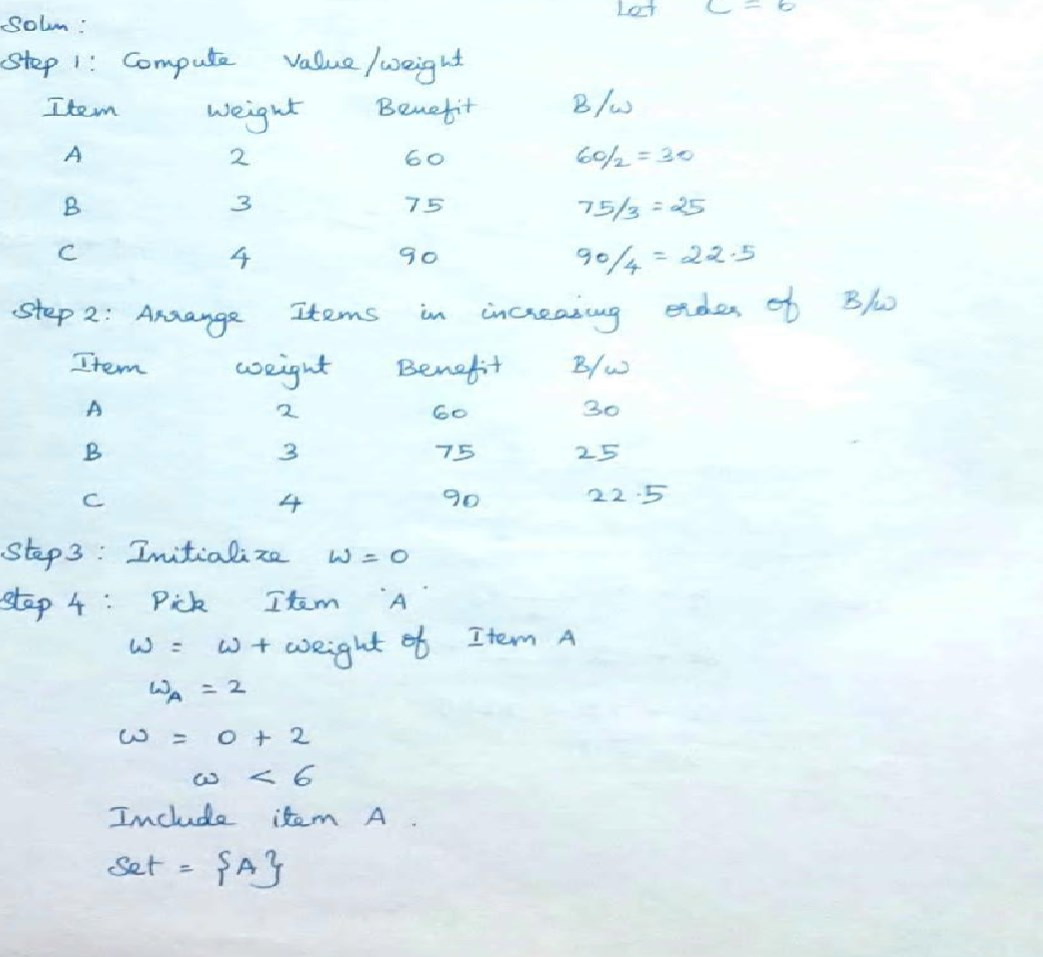 Let C = 6
Soln :
Step 1 : Compute value/weight
Item weight Benefit B/w
A 2 60 60/2 = 30
B 3 75 75/3 = 25
C 4 90 90/4 = 22.5
Step 2 : Arrange Items in increasing order of B/w
Item weight Benefit B/w
A 2 60 30
B 3 75 25
C 4 90 22.5
Step 3 : Initialize w = 0
Step 4 : Pick Item 'A'
w = w + weight of Item A
wA = 2
w = 0 + 2
w < 6
Include item A .
Set = {A}